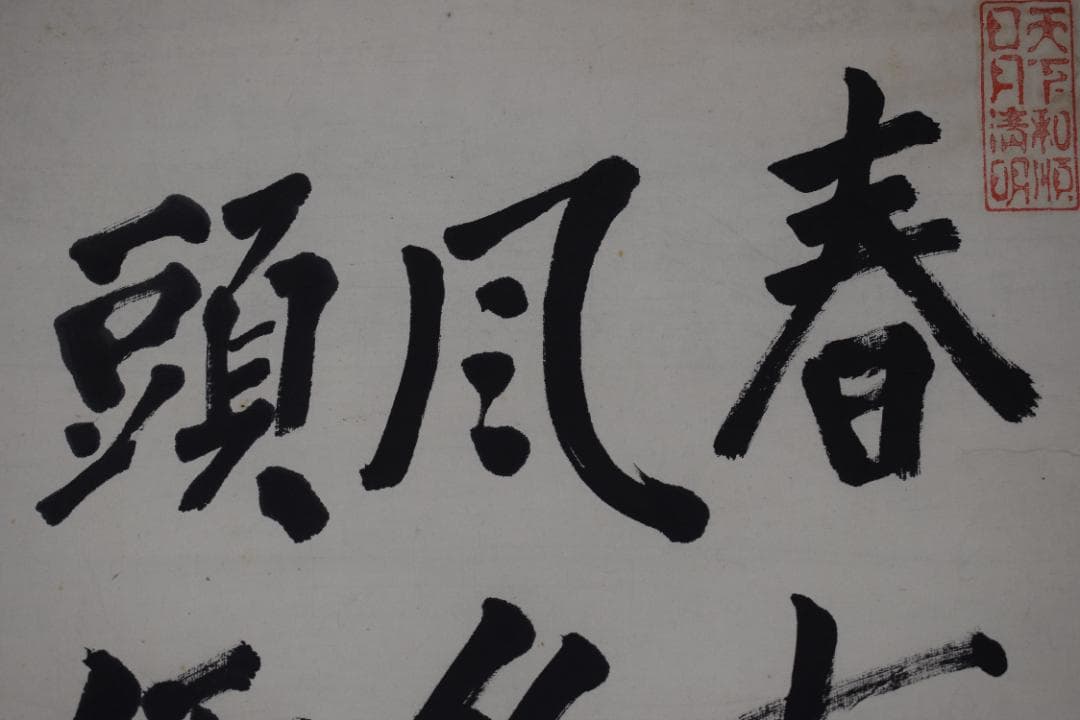 天下和順
日月清明
春
風
頭